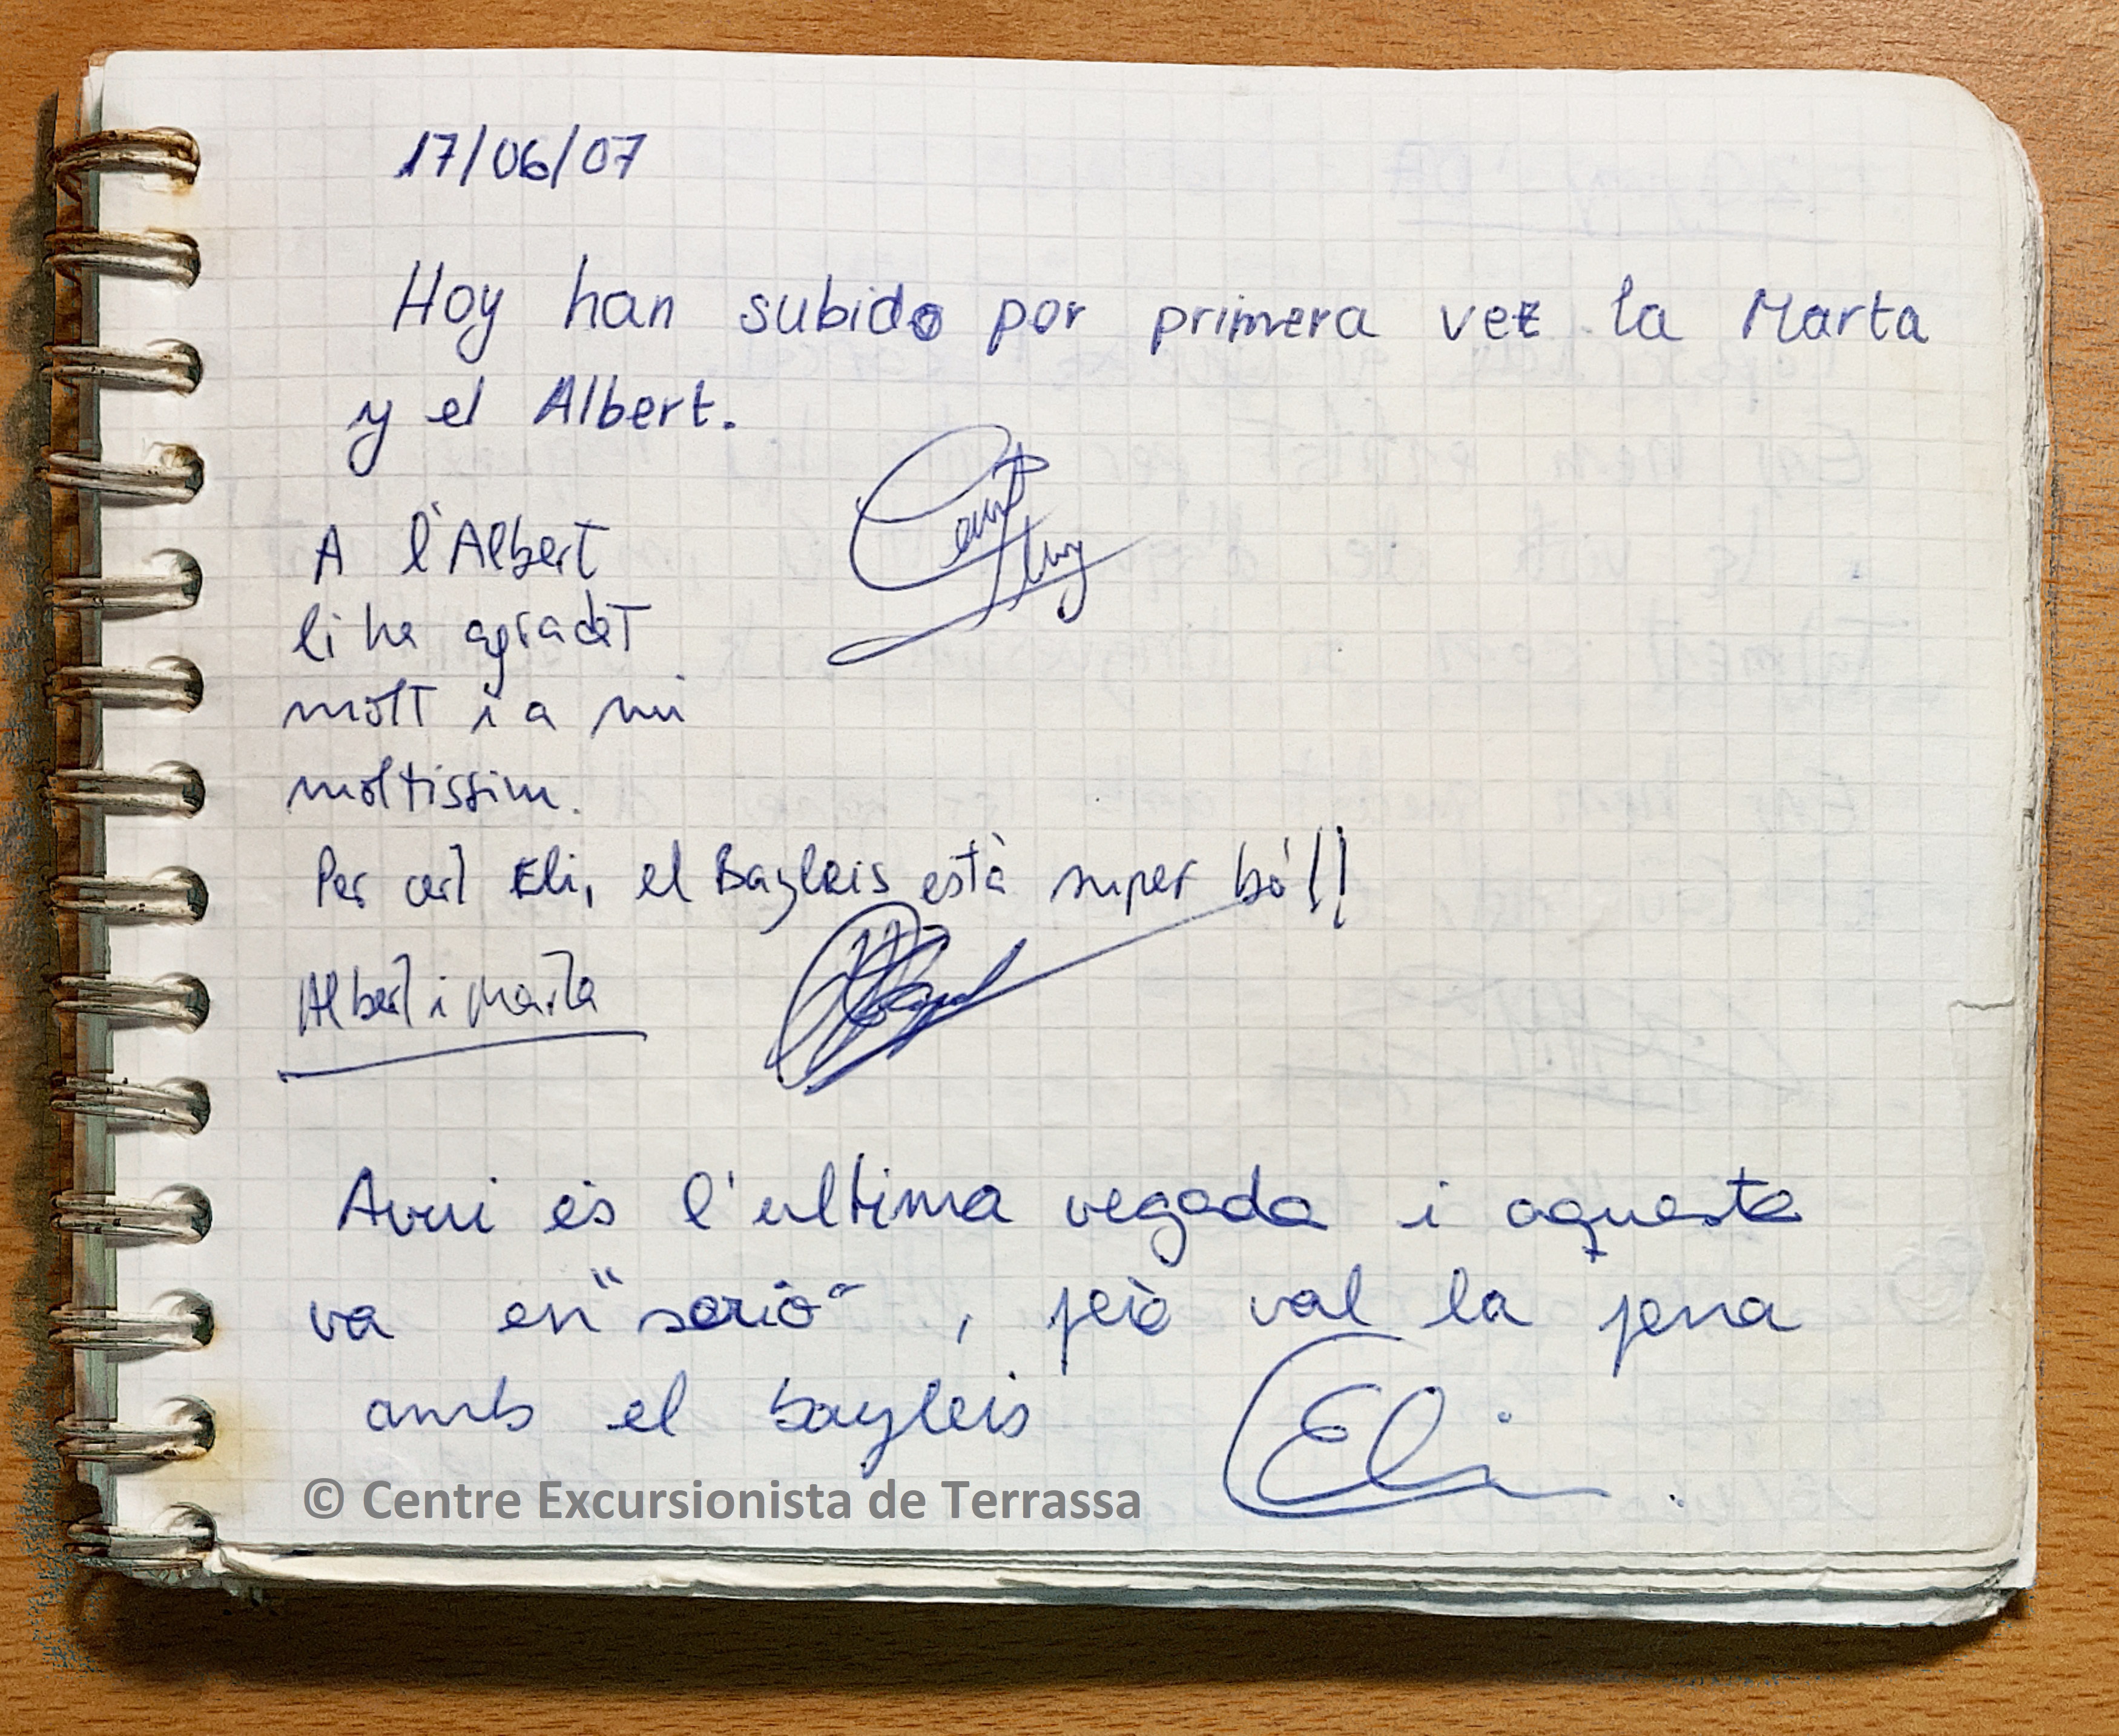 17/06/07
Hoy han subido por primera vez la Marta
y el Albert.
A l'Albert
li ha agradat
molt i a mi
moltissim.
Per cert Eli, el Bayleis està super bó!!
Albert i Marta
Avui és l'ultima vegada i aquesta
va en "serio", però val la pena
amb el bayleis
Eli
© Centre Excursionista de Terrassa